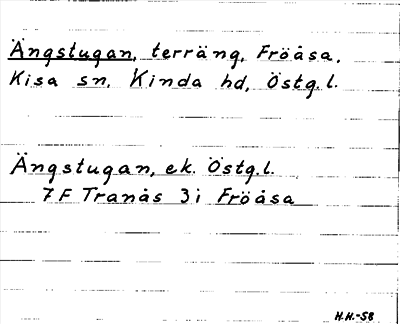 Ängstugan, terräng, Fröåsa,
Kisa sn, Kinda hd, Östg.l.
Ängstugan, ek. Östg.l.
7F Tranås 3i Fröåsa
H.H.-58